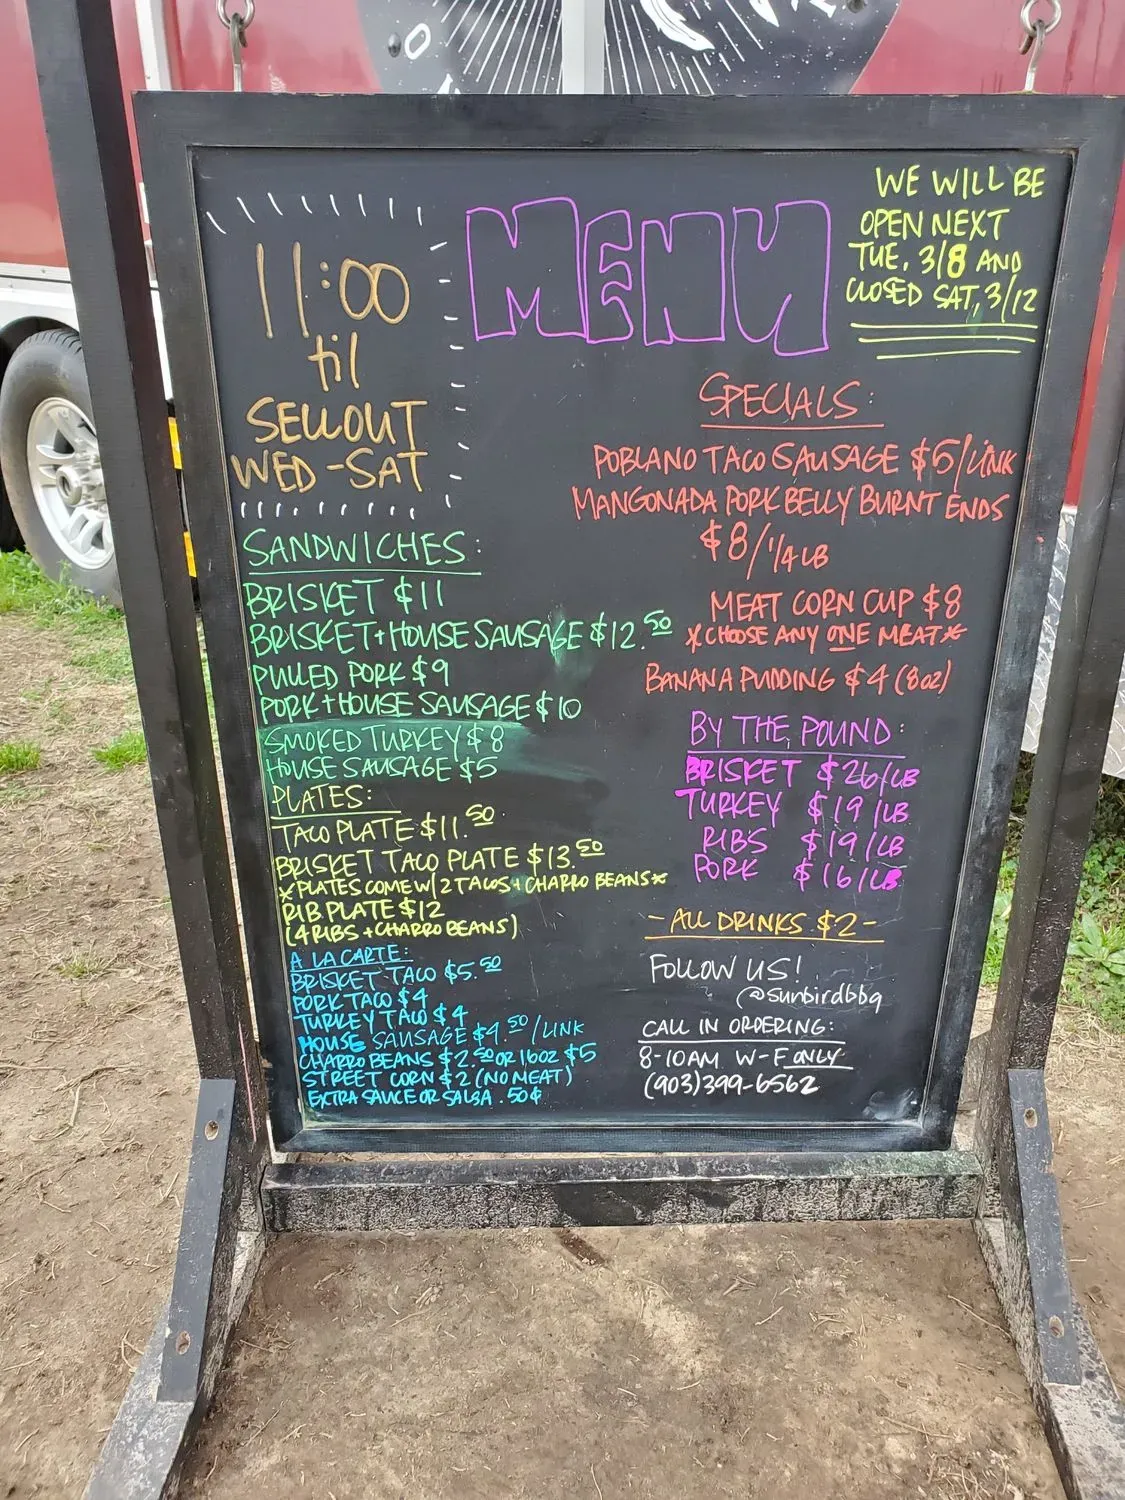 11:00
til
SELLOUT
WED-SAT
MENU
WE WILL BE
OPEN NEXT
TUE. 3/8 AND
CLOSED SAT, 3/12
SANDWICHES:
BRISKET $11
BRISKET+HOUSE SAUSAGE $12.50
PULLED PORK $9
PORK+HOUSE SAUSAGE $10
SMOKED TURKEY $8
HOUSE SAUSAGE $5
PLATES:
TACO PLATE $11.50
BRISKET TACO PLATE $13.50
*PLATES COME W/ 2 TACOS + CHARRO BEANS*
RIB PLATE $12
(4 RIBS + CHARRO BEANS)
A LA CARTE:
BRISKET TACO $5.50
PORK TACO $4
TURKEY TACO $4
HOUSE SAUSAGE $4.50/LINK
CHARRO BEANS $2.50 OR 16OZ $5
STREET CORN $2 (NO MEAT)
EXTRA SAUCE OR SALSA .50¢
SPECIALS:
POBLANO TACO SAUSAGE $5/LINK
MANGONADA PORK BELLY BURNT ENDS
$8/1/4 LB
MEAT CORN CUP $8
*CHOOSE ANY ONE MEAT*
BANANA PUDDING $4 (8oz)
BY THE POUND:
BRISKET $26/LB
TURKEY $19/LB
RIBS $19/LB
PORK $16/LB
-ALL DRINKS $2-
FOLLOW US!
@sunbirdbbq
CALL IN ORDERING:
8-10AM W-F ONLY
(903)399-6562